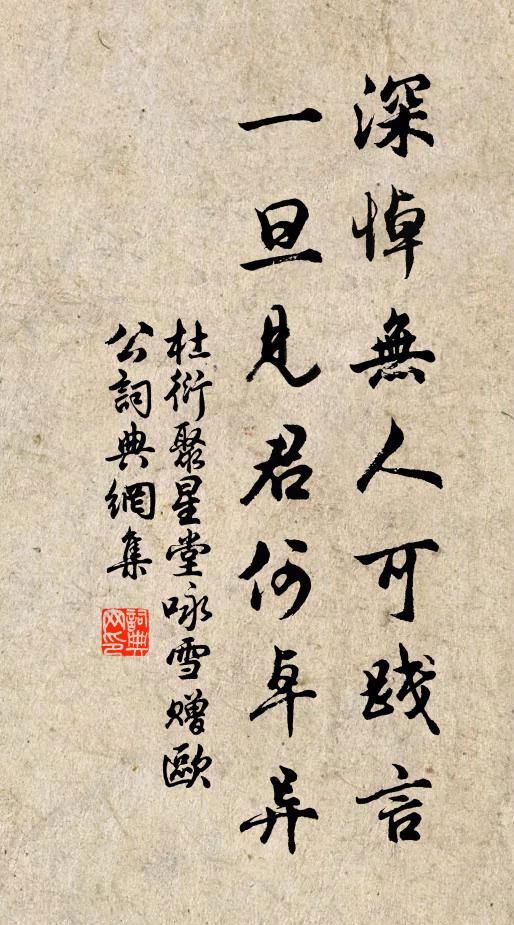 深悼無人可踐言
一旦見君何卓异
杜衍聚星堂咏雪贈歐
公詞典網集
詞典
网印